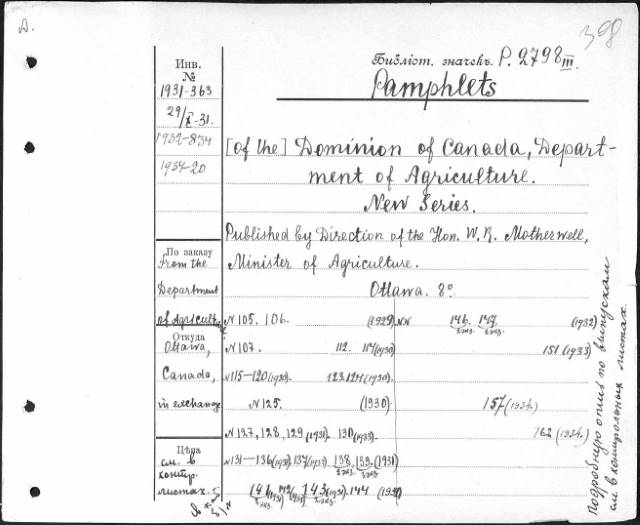 398
Библіот. значекъ. P. 2798 III.
Pamphlets
Инв.
№
1931-363
29/X-31.
1932-834
1934-20
[of the] Dominion of Canada, Depart-
ment of Agriculture.
New Series.
Published by Direction of the Hon. W. R. Motherwell,
Minister of Agriculture.
Ottawa. 8º
По заказу
From the
Department
of Agriculture
Откуда
Ottawa,
Canada,
in exchange
Цѣна
см. в
контр.
листах.
N 105. 106. (1929) NN 146. 147. (1932)
2 экз. 2 экз.
N 107. 112. 114 (1930) 151 (1933)
N 115-120 (1930). 123.124 (1930).
N 125. (1930) 157 (1934.)
N 127, 128, 129 (1931). 130 (1933). 162 (1934.)
N 131-136 (1931) 137 (1933). 138, 139. (1931)
2 экз. 2 экз.
141 (1931) 142 (1931) 143 (1931). 144
2 экз. 2 экз.
Подробную опись по выпускам
см. в контрольных листах.